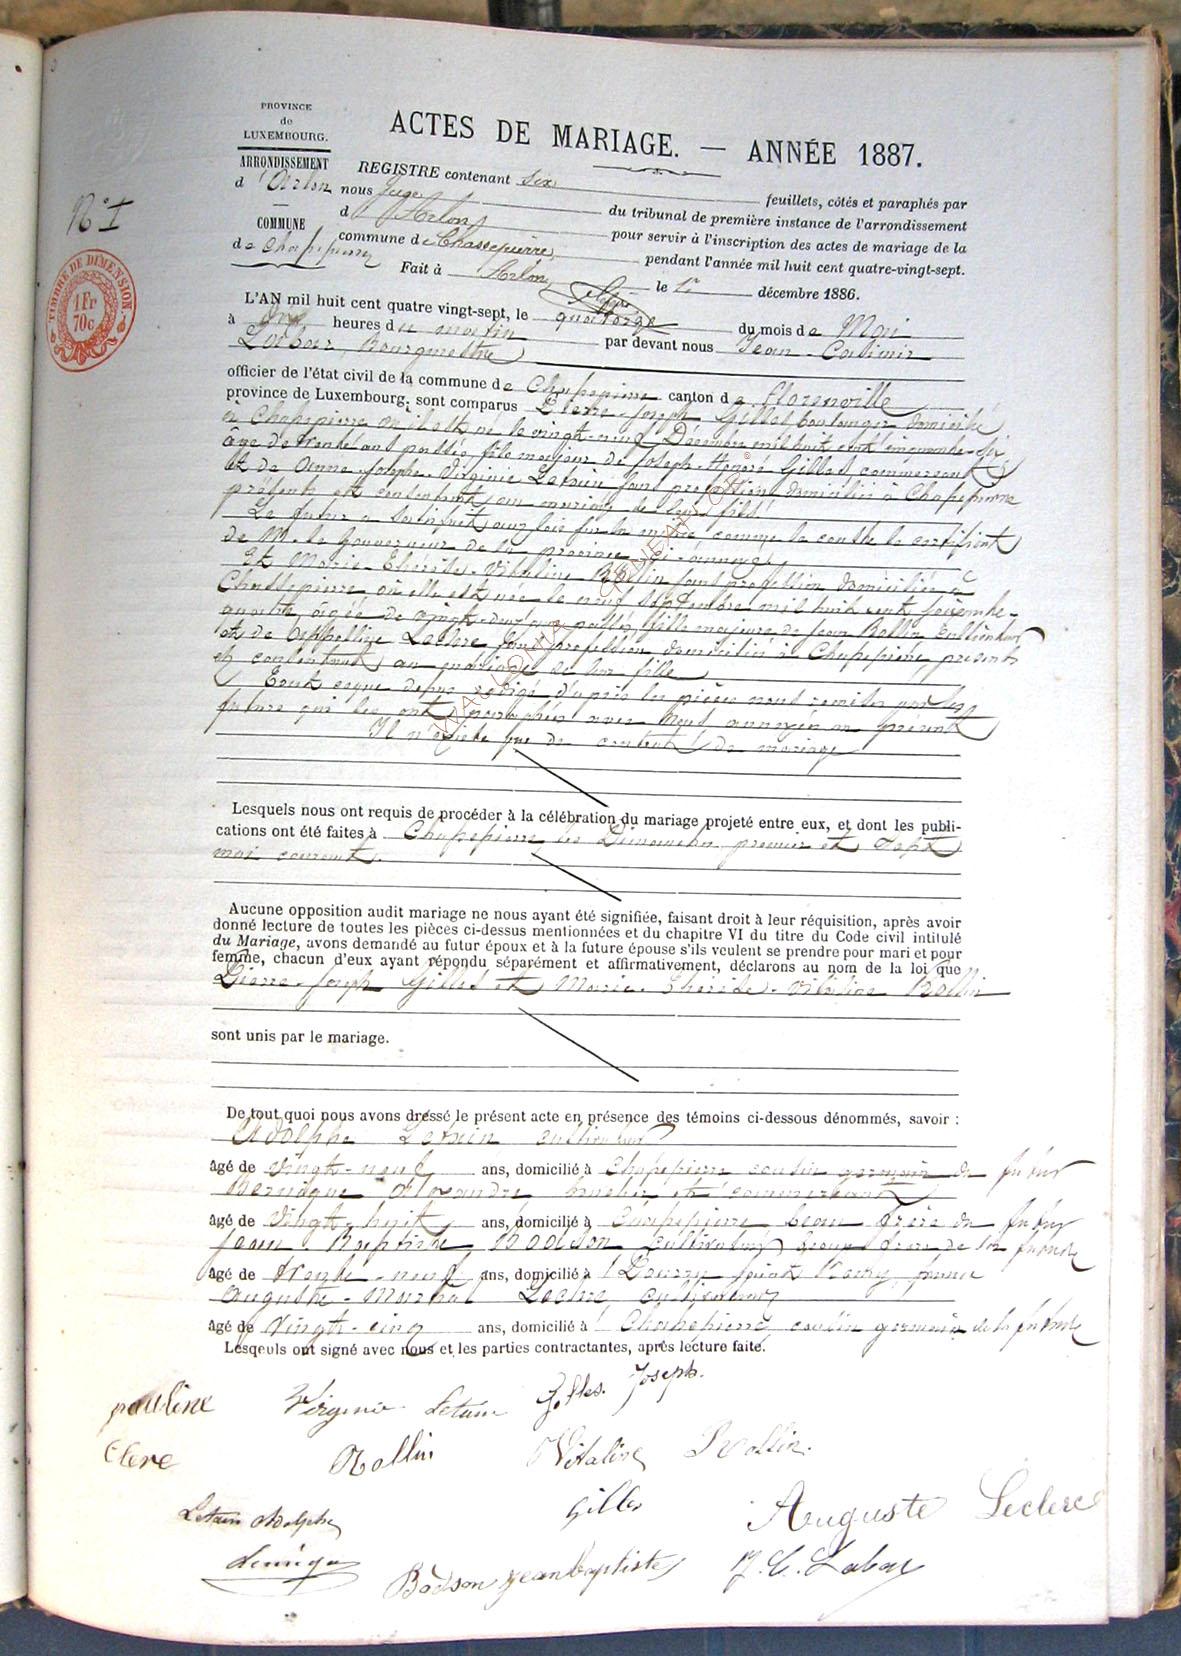 PROVINCE
de
LUXEMBOURG.
ARRONDISSEMENT
d'Arlon
COMMUNE
de Chassepierre
N° 1
TIMBRE DE DIMENSION.
1 Fr
70c
ACTES DE MARIAGE. — ANNÉE 1887.
REGISTRE contenant six feuillets, côtés et paraphés par
nous Juge du tribunal de première instance de l'arrondissement
d'Arlon pour servir à l'inscription des actes de mariage de la
commune de Chassepierre, pendant l'année mil huit cent quatre-vingt-sept.
Fait à Arlon, le 1er décembre 1886.
L'AN mil huit cent quatre vingt-sept, le quatorze du mois de Mai
à heures du matin par devant nous Jean-Casimir
Bourgmestre
officier de l'état civil de la commune de Chassepierre canton de Florenville
province de Luxembourg; sont comparus Pierre-Joseph Gilles boulanger domicilié
à Chassepierre où il est né le vingt-neuf Décembre mil huit cent cinquante-six
âgé de trente ans passés, fils majeur de Joseph-Honoré Gilles, commerçant
et de Anne-Josephe-Virginie Letain sans profession domiciliés à Chassepierre
présents et consentants au mariage de leur fils.
Le futur a satisfait aux lois sur la milice comme le constate le certificat
de M. le Gouverneur de la province ci-annexé,
Et Marie-Thérèse-Vitaline Rollin sans profession domiciliée à
Chassepierre, où elle est née le neuf septembre mil huit cent soixante-
quatre âgée de vingt-deux ans passés fille majeure de Jean Rollin Cultivateur
et de Leclere sans profession domiciliés à Chassepierre présents
et consentant au mariage de leur fille.
Tout ce que dessus rédigé d'après les pièces nous remises par les
futurs qui les ont paraphées avec Nous annexées au présent
Il n'existe pas de contrat de mariage
Lesquels nous ont requis de procéder à la célébration du mariage projeté entre eux, et dont les publi-
cations ont été faites à Chassepierre les Dimanches premier et
mai courant.
Aucune opposition audit mariage ne nous ayant été signifiée, faisant droit à leur réquisition, après avoir
donné lecture de toutes les pièces ci-dessus mentionnées et du chapitre VI du titre du Code civil intitulé
du Mariage, avons demandé au futur époux et à la future épouse s'ils veulent se prendre pour mari et pour
femme, chacun d'eux ayant répondu séparément et affirmativement, déclarons au nom de la loi que
Pierre-Joseph Gilles et Marie-Thérèse-Vitaline Rollin
sont unis par le mariage.
De tout quoi nous avons dressé le présent acte en présence des témoins ci-dessous dénommés, savoir :
Adolphe Letain cultivateur
âgé de vingt-neuf ans, domicilié à Chassepierre cousin germain du futur
Alexandre et commerçant
âgé de vingt-huit ans, domicilié à Chassepierre beau frère du futur
Jean-Baptiste Bodson cultivateur beau frère de la future
âgé de trente-neuf ans, domicilié à
Auguste-Martial Leclere cultivateur
âgé de vingt-cinq ans, domicilié à Chassepierre cousin germain de la future
Lesqeuls ont signé avec nous et les parties contractantes, après lecture faite.
pauline Virginie Letain Gilles Joseph.
Clere Rollin Vitaline Rollin.
Letain Adolphe Gilles Auguste Leclere
Bodson jean baptiste